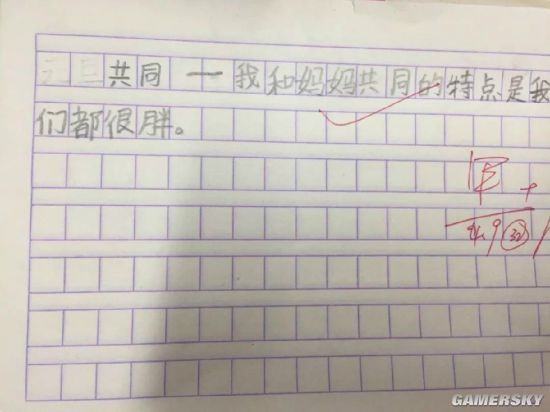 共同——我和妈妈共同的特点是我
们都很胖。
GAMERSKY